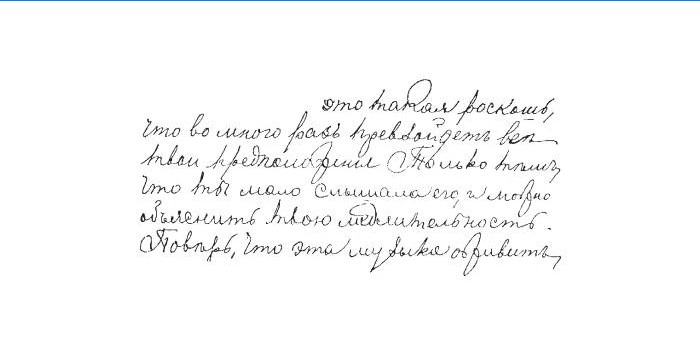 это такая роскошь,
что во много разъ превзойдетъ все
твои предположения Только темъ,
что ты мало слышала его, и можно
объяснить твою медлительность.
Поверь, что эта музыка оживитъ,